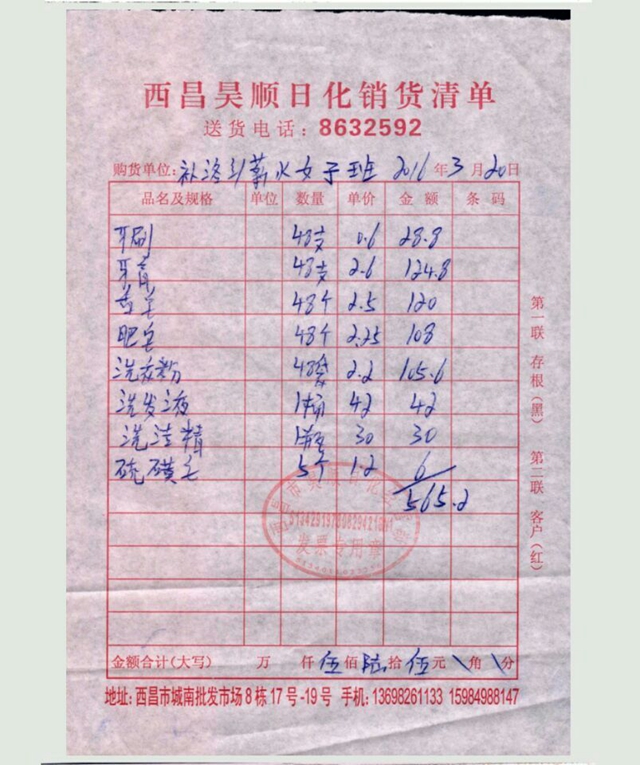 西昌昊顺日化销货清单
送货电话：8632592
购货单位：补洛引薪火女子班 2016年3月20日
品名及规格 单位 数量 单价 金额 条码
牙刷 48支 0.6 28.8
牙膏 48支 2.6 124.8
香皂 48个 2.5 120
肥皂 48个 2.25 108
洗衣粉 48袋 2.2 105.6
洗发液 1桶 42 42
洗洁精 1瓶 30 30
硫磺皂 5个 1.2 6
565.2
发票专用章
金额合计(大写) 万 仟 伍佰 陆拾 伍元 \角 \分
地址：西昌市城南批发市场8栋17号-19号 手机：13698261133 15984988147
第一联 存根(黑) 第二联 客户(红)